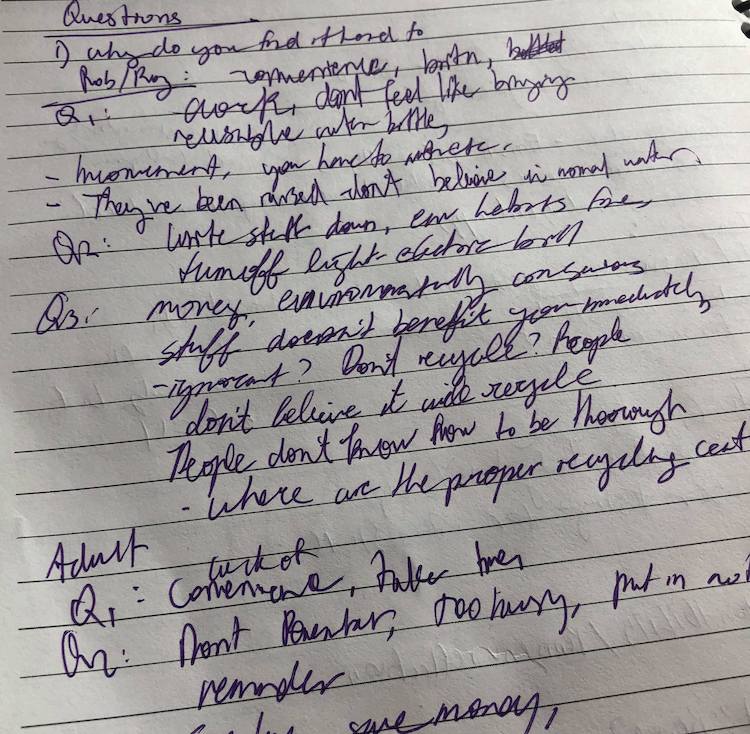 Questions
1) why do you find it hard to
Rob/Roy: convenience,
Q1: work, don't feel like bringing
reusable water bottle,
- Inconvenient, you have to
- They've been raised don't believe in normal water
Q2: Write stuff down,
turn off light electric bill
Q3: money, environmentally conscious
stuff doesn't benefit you immediately
- ignorant? Don't recycle? People
don't believe it will recycle
People don't know how to be thorough
- where are the proper recycling cent
Adult
lack of
Q1: Convenience, takes time
Q2: Dont remember, too busy, put in
reminder
save money,